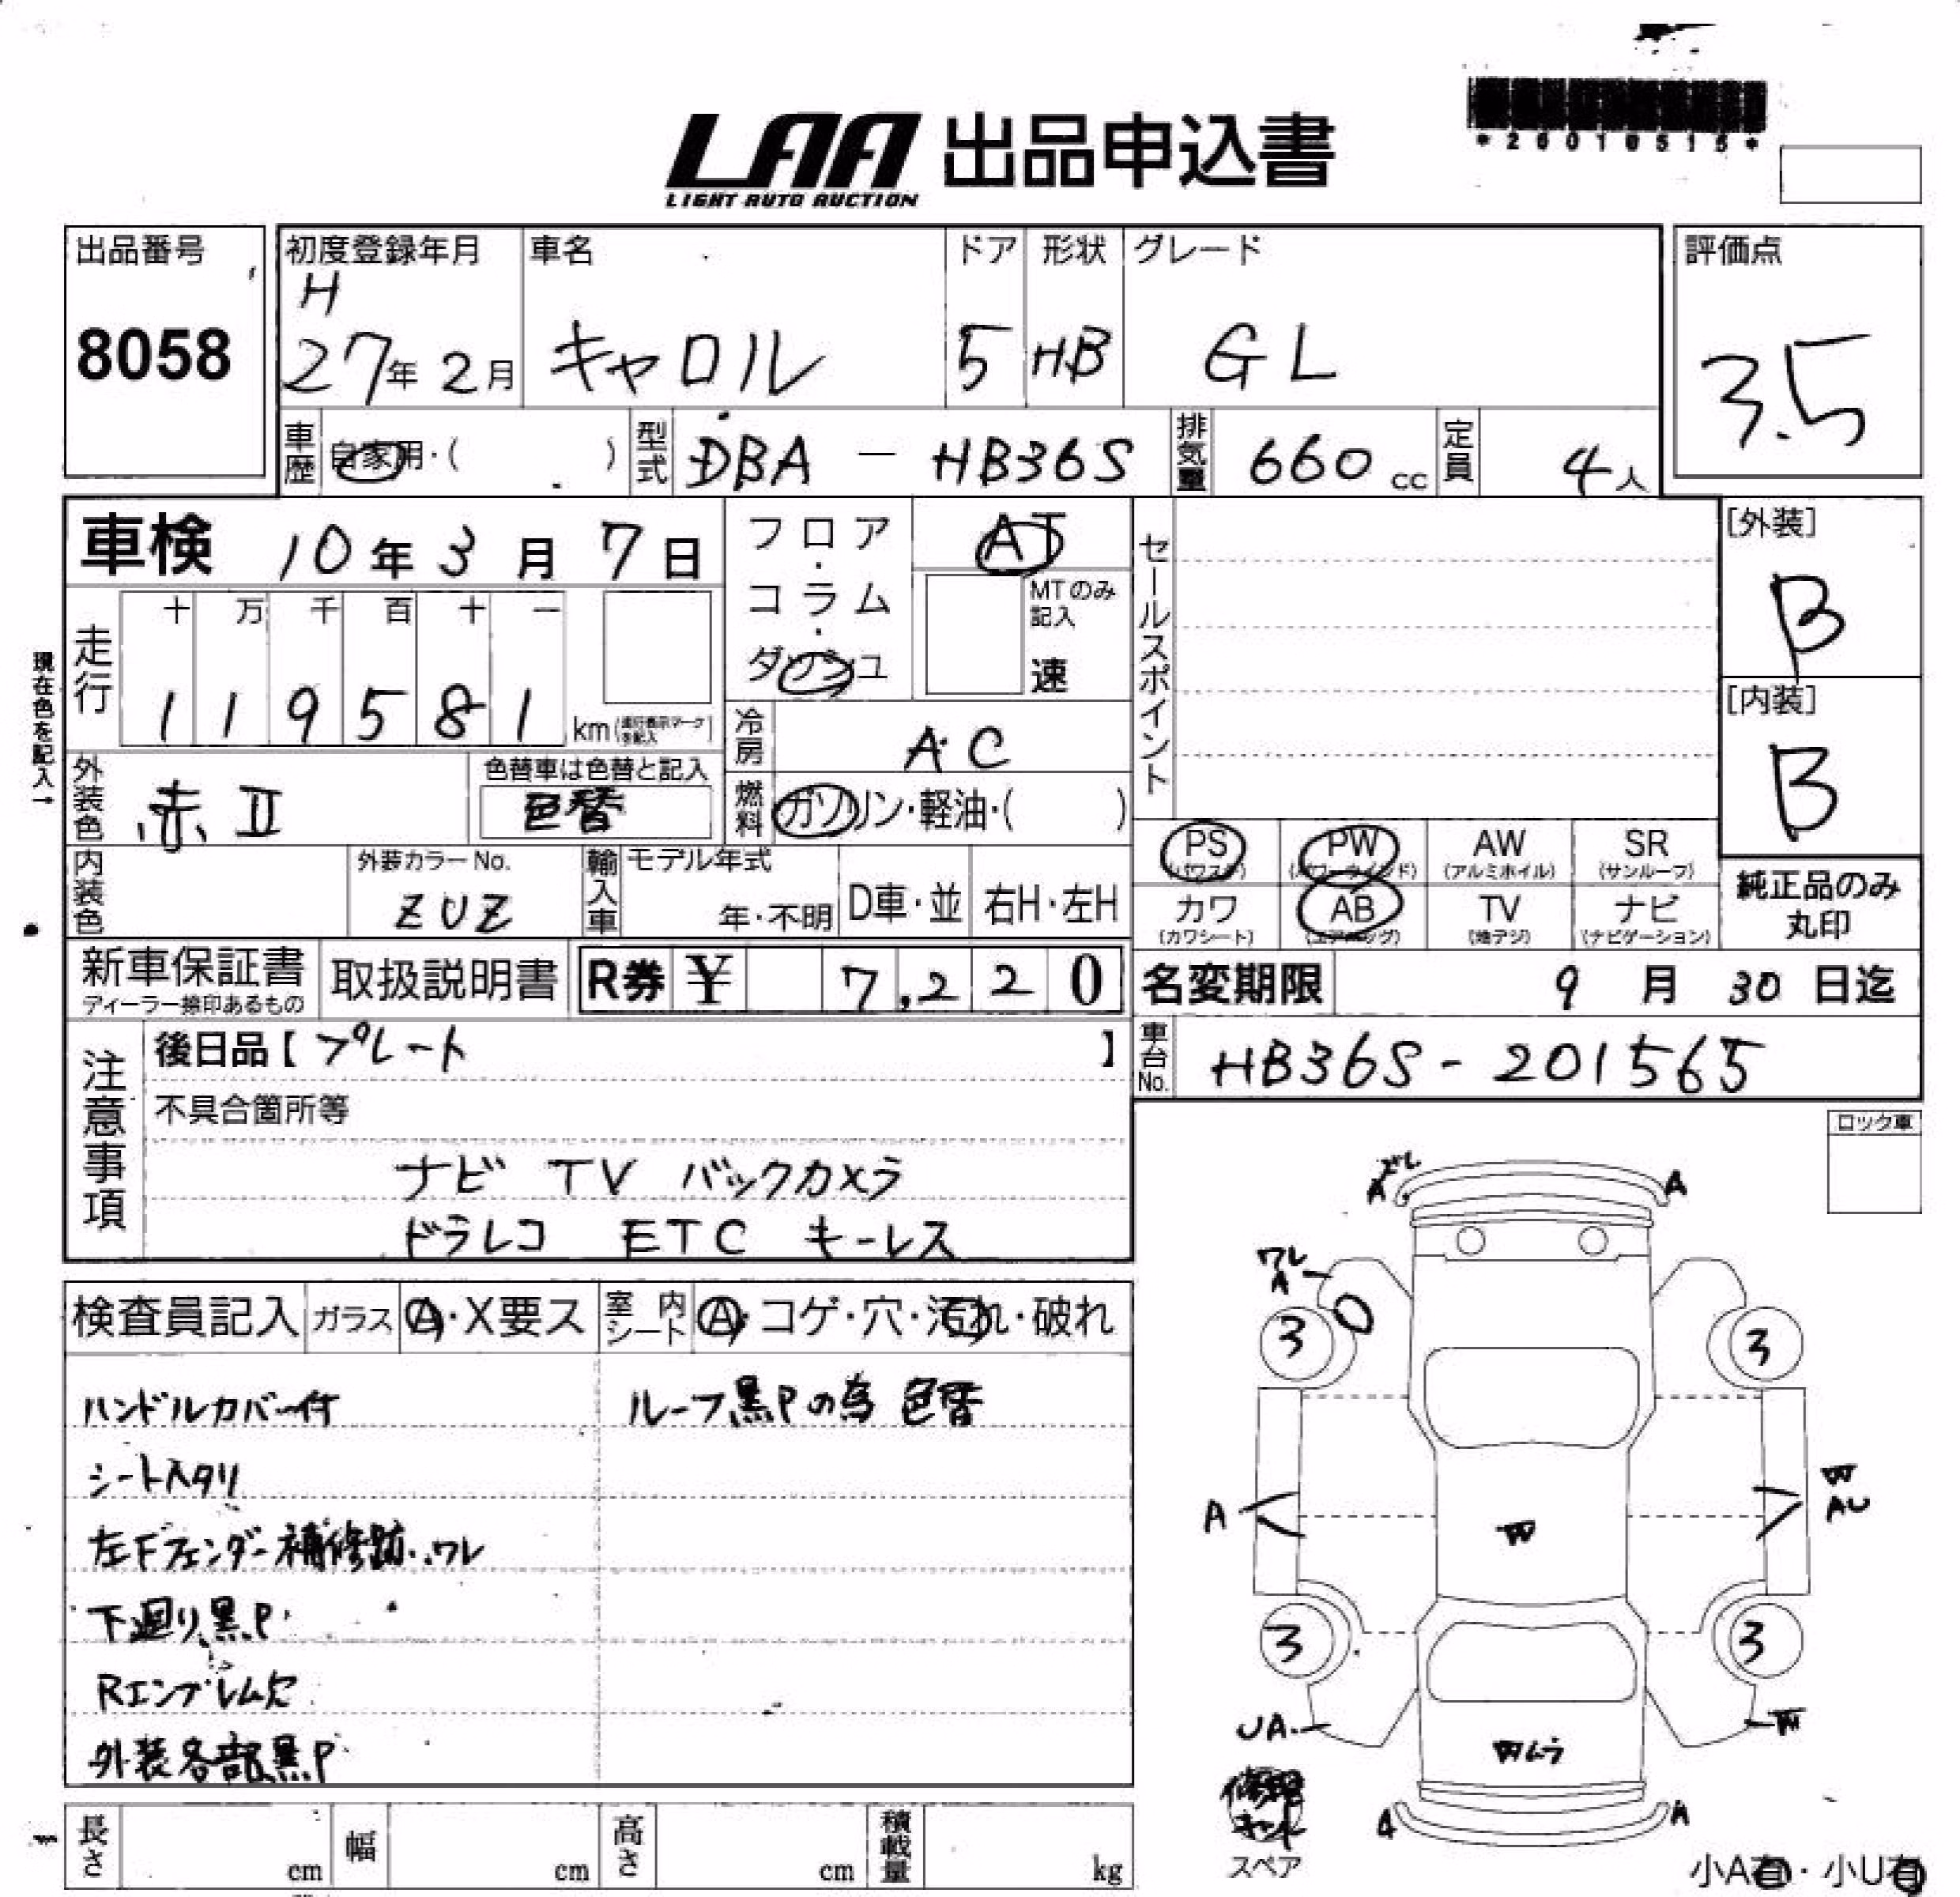 *26010515*
LAA 出品申込書
LIGHT AUTO AUCTION
出品番号
8058
初度登録年月
H
27年 2月
車名
キャロル
ドア
5
形状
HB
グレード
GL
評価点
3.5
車歴 自家用・( )
型式 DBA - HB36S
排気量 660 cc
定員 4人
車検 10年 3月 7日
フロア・コラム・ダッシュ
AT
MTのみ記入
速
セールスポイント
[外装]
B
[内装]
B
現在色を記入→
走行
十 万 千 百 十 一
1 1 9 5 8 1 km
冷房 AC
外装色 赤II
色替車は色替と記入
色替
燃料 ガソリン・軽油・( )
PS (パワステ)
PW (パワーウインド)
AW (アルミホイル)
SR (サンルーフ)
カワ (カワシート)
AB (エアバッグ)
TV (地デジ)
ナビ (ナビゲーション)
純正品のみ丸印
内装色
外装カラーNo.
ZUZ
輸入車
モデル年式
年・不明
D車・並
右H・左H
新車保証書
ディーラー捺印あるもの
取扱説明書
R券 ¥ 7,220
名変期限 9月 30日迄
注意事項
後日品【プレート 】
車台No. HB36S-201565
不具合箇所等
ナビ TV バックカメラ
ドラレコ ETC キーレス
ロック車
検査員記入
ガラス A・X要ス
室内シート A・コゲ・穴・汚れ・破れ
ハンドルカバー付
シート入タリ
左Fフェンダー補修跡、ワレ
下廻り黒P
Rエンブレム欠
外装各部黒P
ルーフ黒Pの為 色替
ズレ
A
A
ワレ
A
3
3
A
W
AU
W
3
3
UA
W
Wムラ
修理キット
スペア
A
A
長さ cm
幅 cm
高さ cm
積載量 kg
小A有・小U有